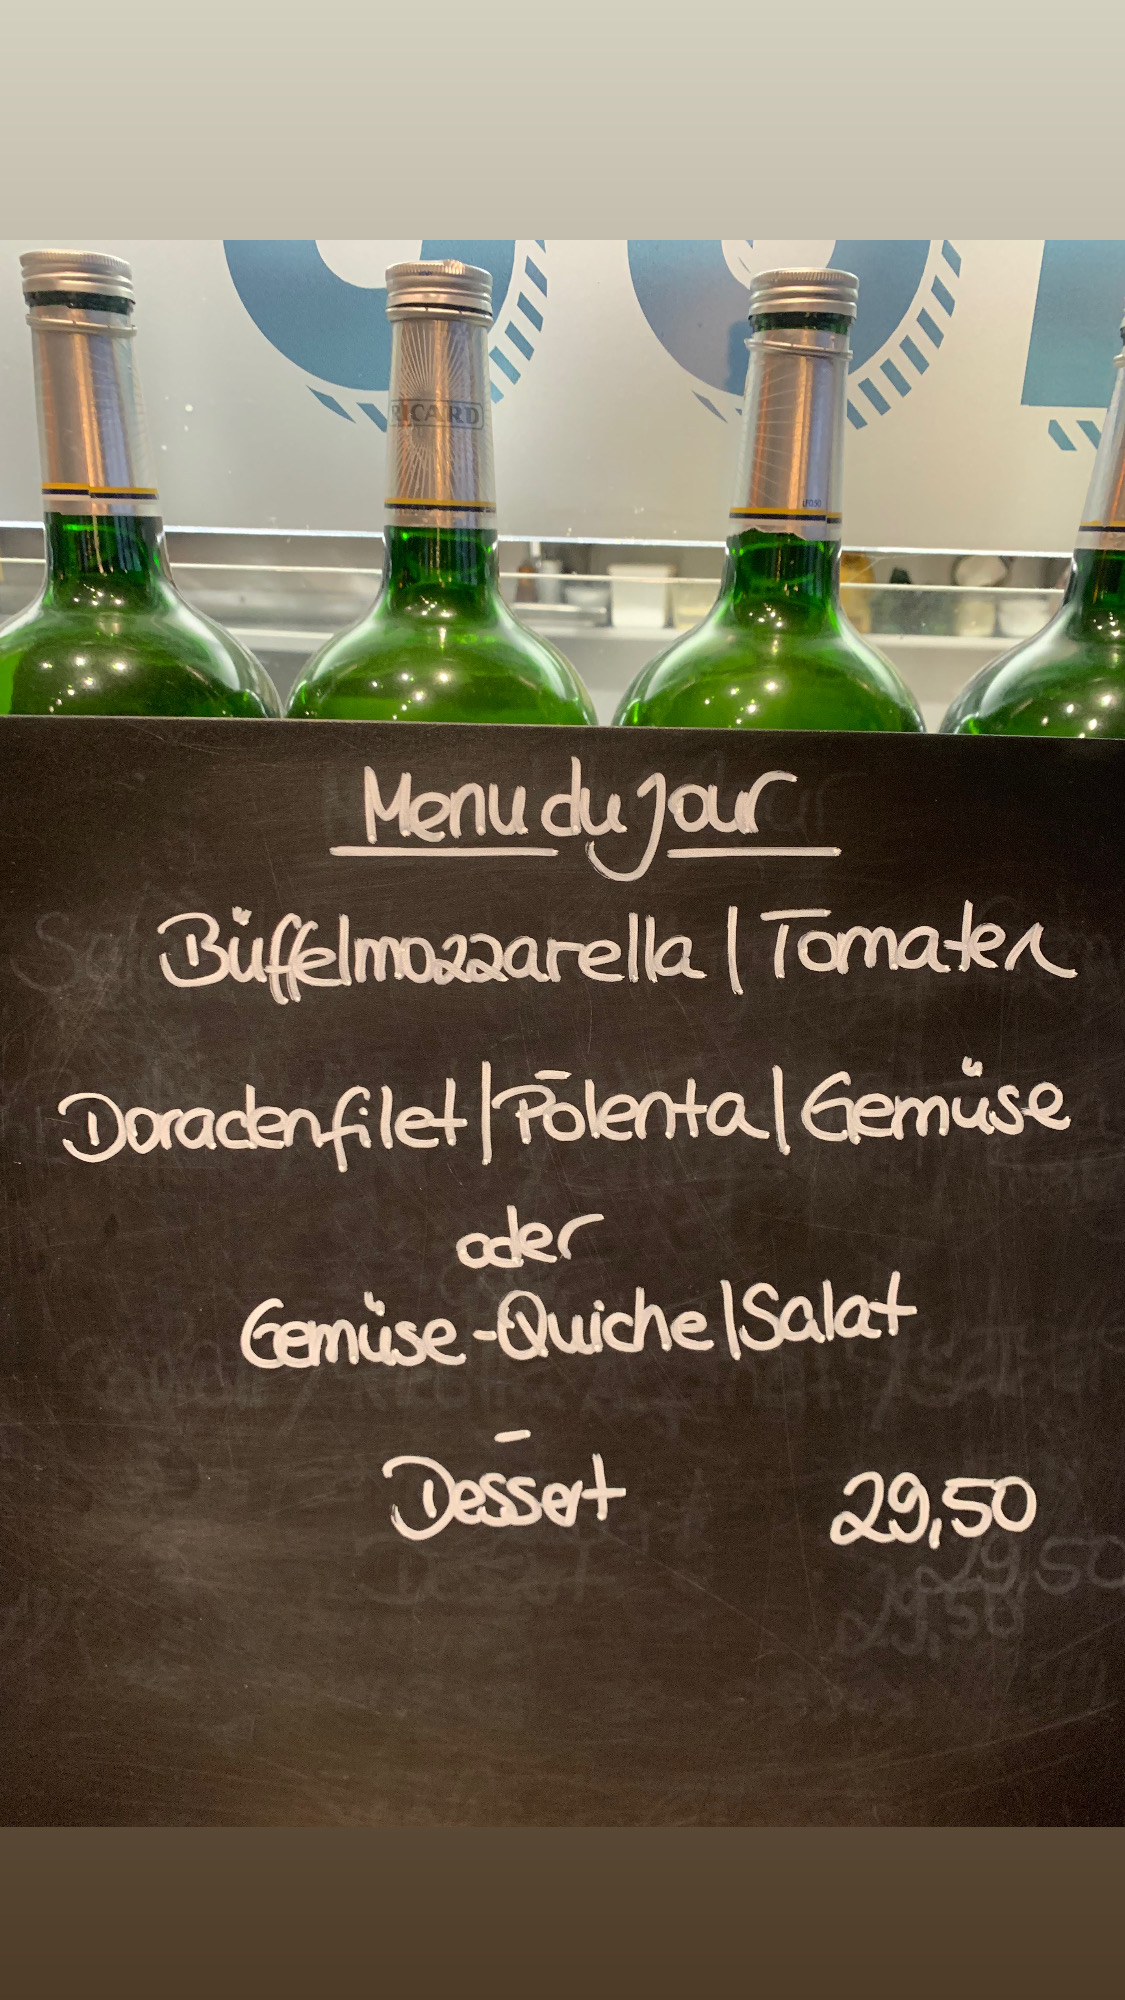 RICARD
Menu du jour
Büffelmozzarella | Tomaten
–
Doradenfilet | Polenta | Gemüse
oder
Gemüse-Quiche | Salat
–
Dessert 29,50